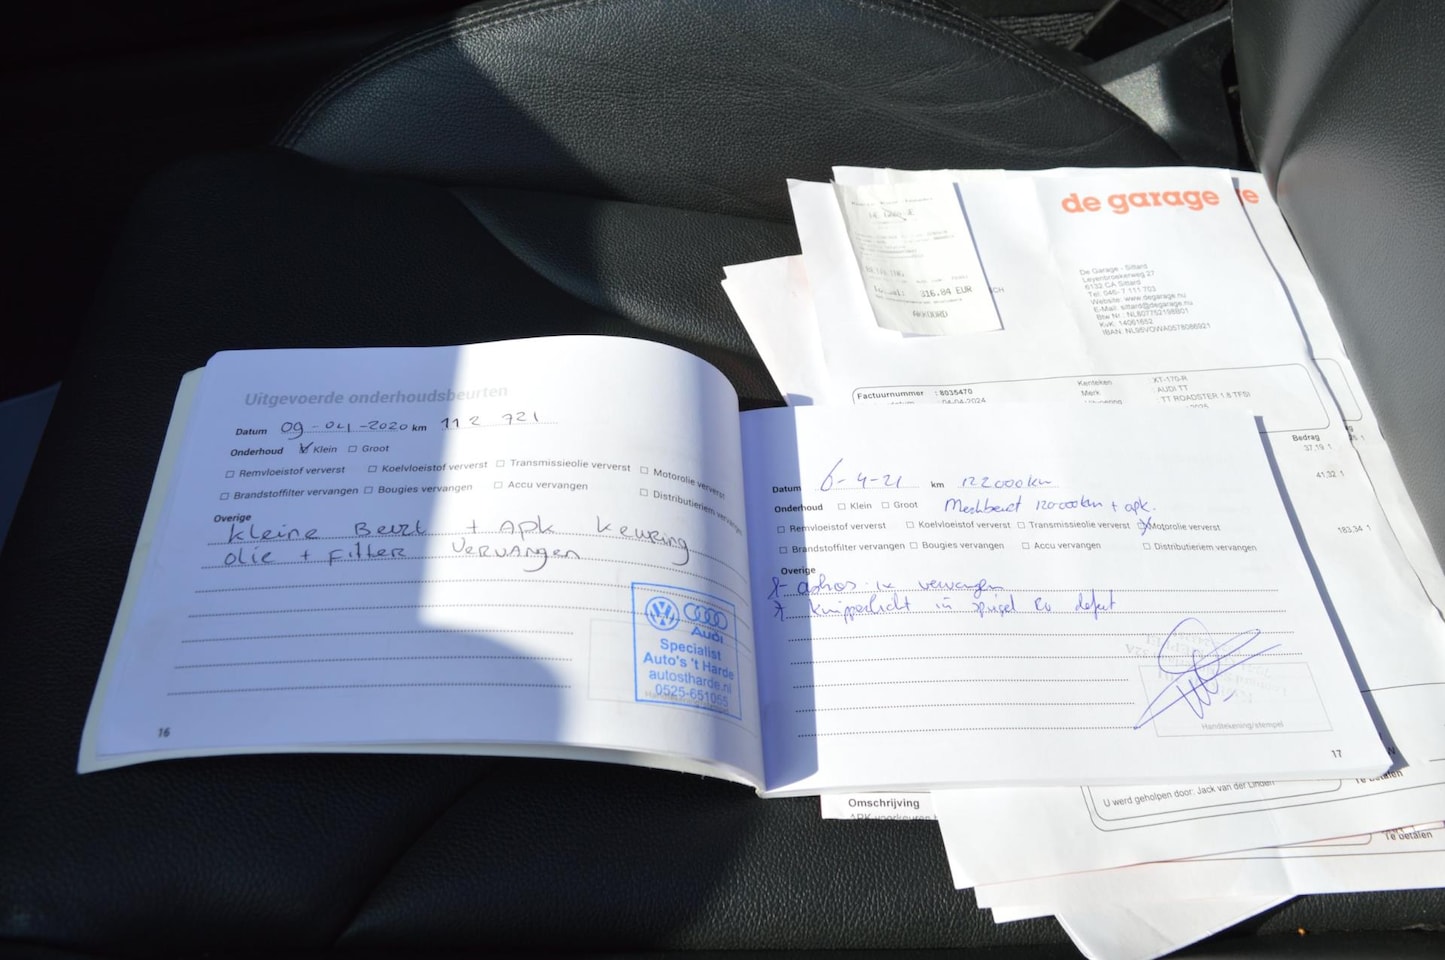 Uitgevoerde onderhoudsbeurten
Datum 09-04-2020 km 112 721
Onderhoud Klein Groot
Remvloeistof ververst Koelvloeistof ververst Transmissieolie ververst Motorolie ververst
Brandstoffilter vervangen Bougies vervangen Accu vervangen Distributieriem vervangen
Overige
kleine Beurt + APK keuring
olie + Filter Vervangen
Audi
Specialist
Auto's 't Harde
autostharde.nl
0525-651055
16
Datum 6-4-21 km 122000km
Onderhoud Klein Groot 120000km + apk.
Remvloeistof ververst Koelvloeistof ververst Transmissieolie ververst Motorolie ververst
Brandstoffilter vervangen Bougies vervangen Accu vervangen Distributieriem vervangen
Overige
vervangen
knipperlicht in spiegel defect
Handtekening/stempel
17
316.84 EUR
AKKOORD
de garage
De Garage - Sittard
Leyenbroekerweg 27
6132 CA Sittard
Tel: 046- 7 111 703
Website: www.degarage.nu
E-Mail: sittard@degarage.nu
Btw Nr.: NL807752198B01
KvK: 14061652
Factuurnummer : 8035470
04-04-2024
Kenteken : XT-170-R
Merk : AUDI TT
: TT ROADSTER 1.8 TFSI
Bedrag
37,19 1
41,32 1
183,34 1
Omschrijving
U werd geholpen door: Jack van der Linden
Te betalen
Te betalen